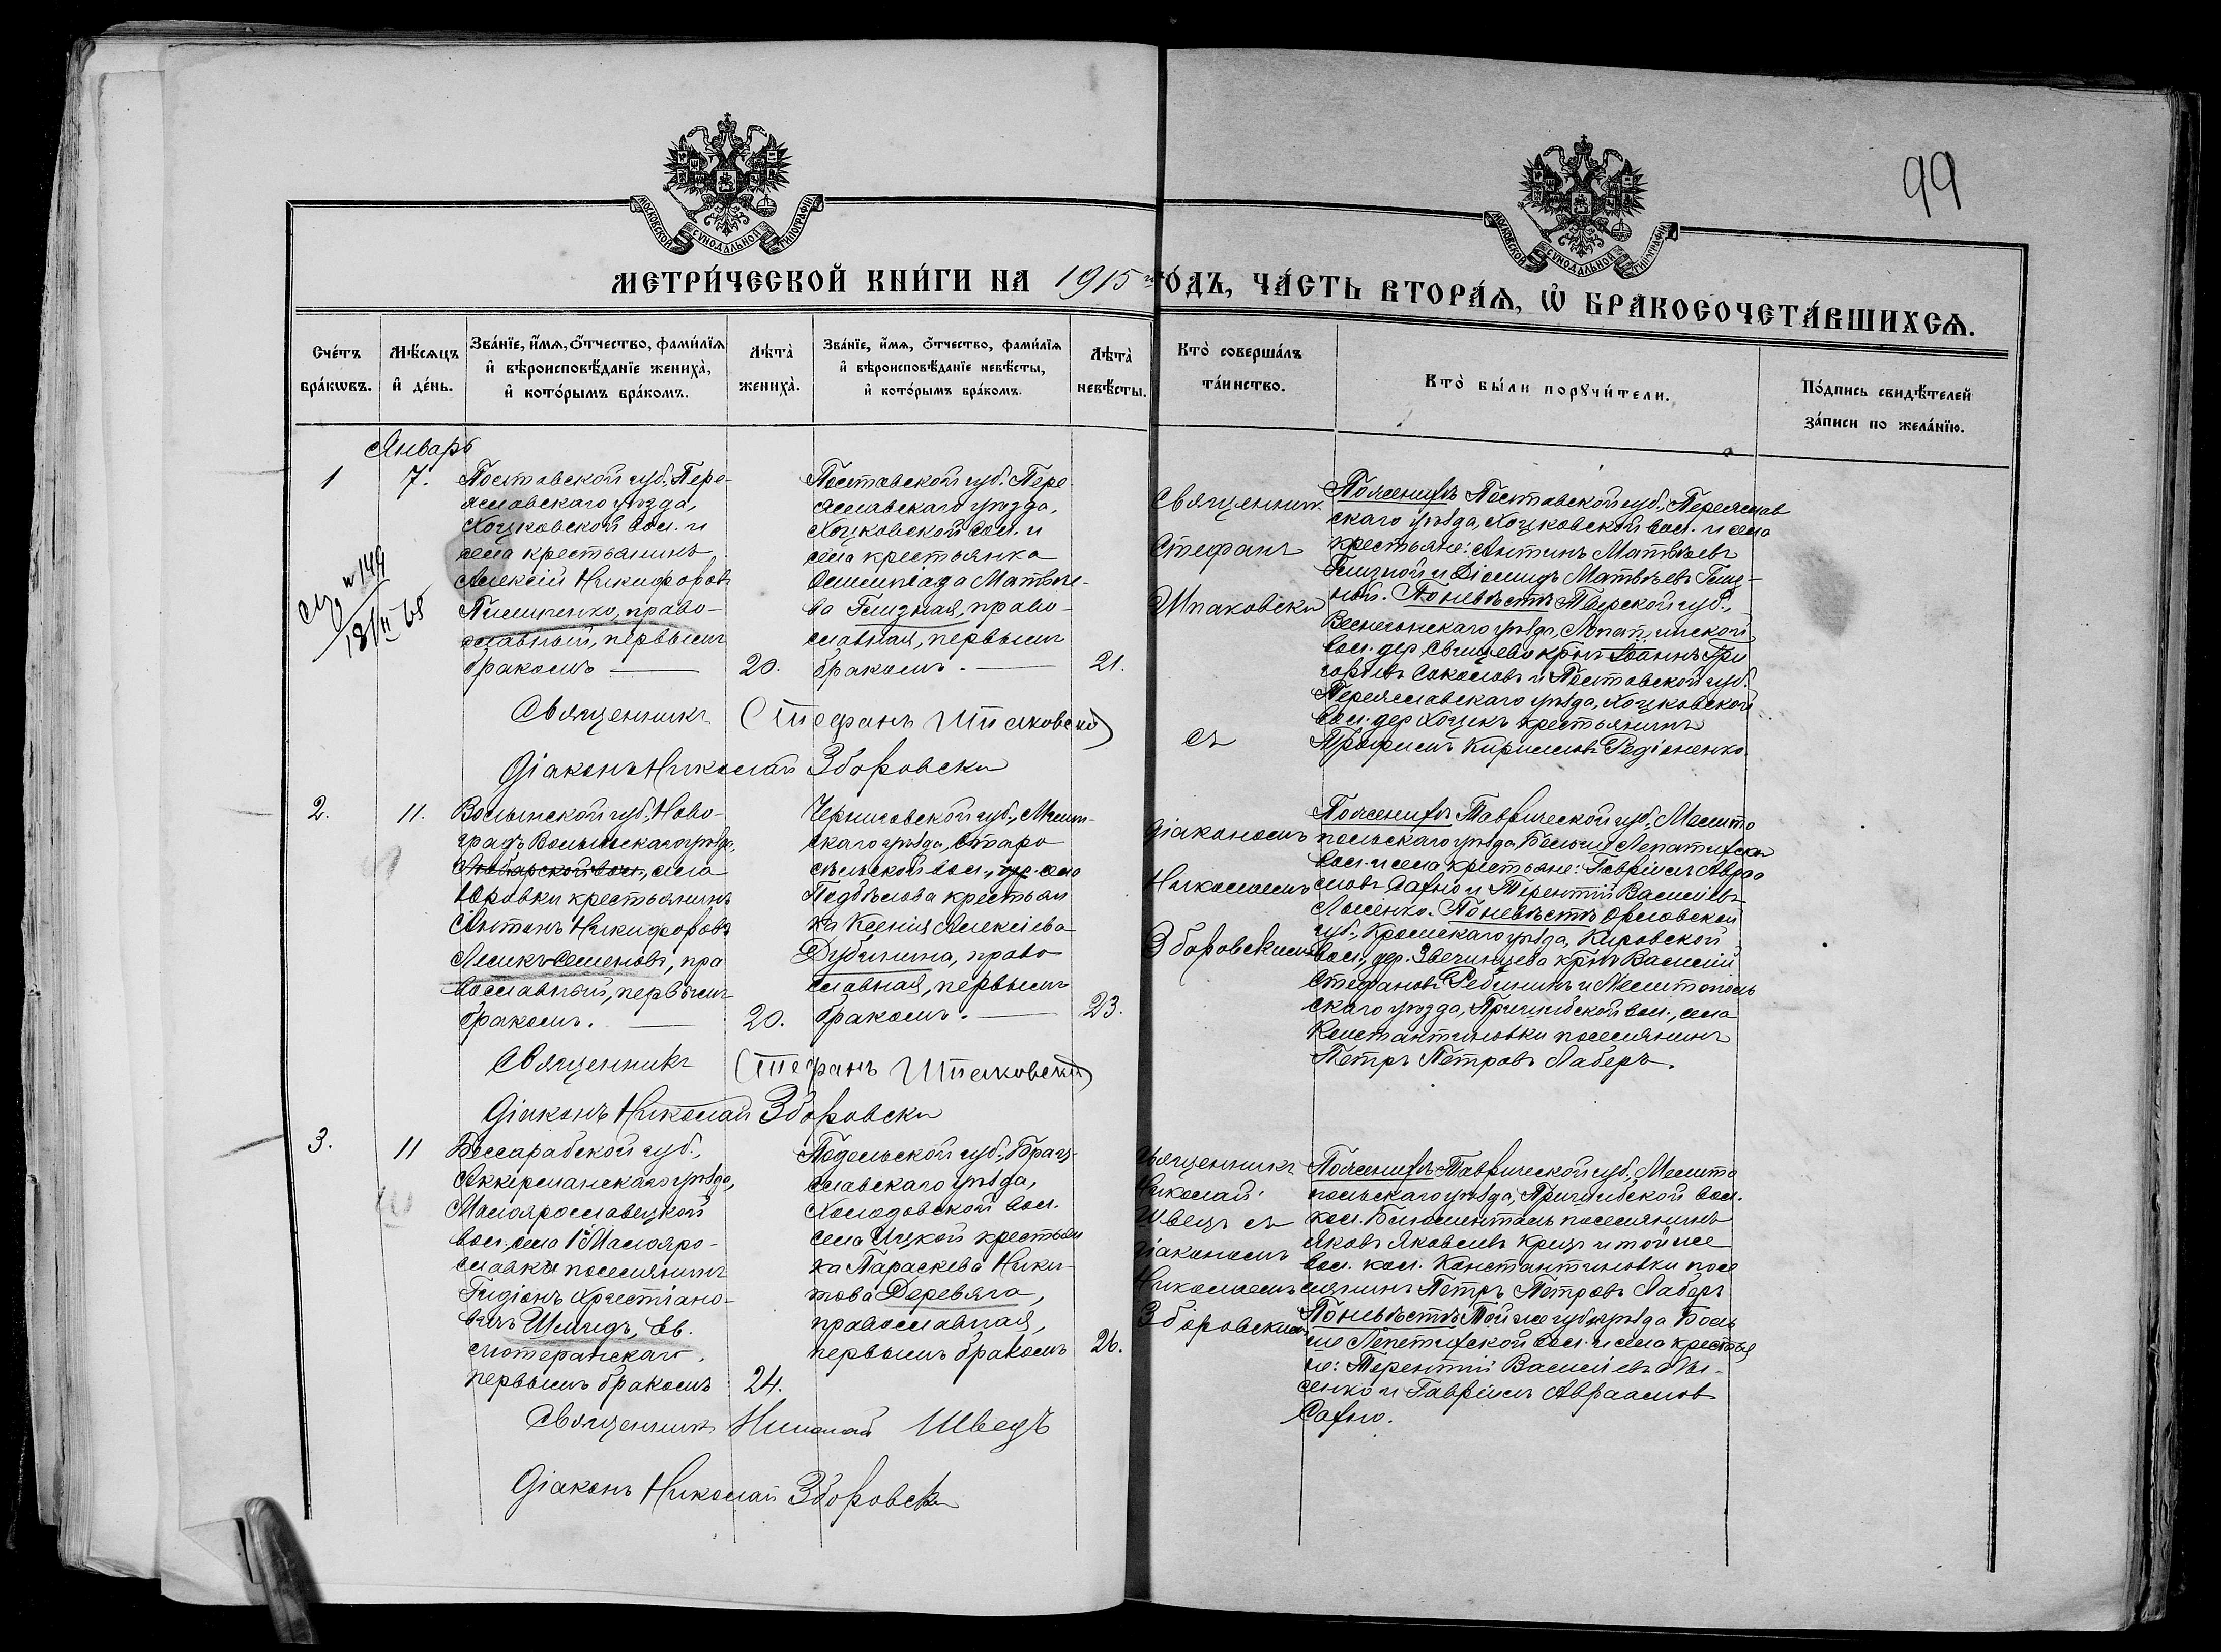 99
МОСКОВСКОЙ СѴНОДАЛЬНОЙ ТИПОГРАФІИ
МОСКОВСКОЙ СѴНОДАЛЬНОЙ ТИПОГРАФІИ
МЕТРИ́ЧЕСКОЙ КНИ́ГИ НА 1915 го́ДЪ, ЧА́СТЬ ВТОРА́Ѧ, Ѽ БРАКОСОЧЕТА́ВШИХСѦ.
Сче́тъ бра́кωвъ.
Мѣ́сѧцъ и҆ де́нь.
Зва́нїе, и҆́мѧ, ѻ҆́тчество, фами́лїѧ и҆ вѣроисповѣ́данїе жениха̀, и҆ кото́рымъ бра́комъ.
Лѣта̀ жениха̀.
Зва́нїе, и҆́мѧ, ѻ҆́тчество, фами́лїѧ и҆ вѣроисповѣ́данїе невѣ́сты, и҆ кото́рымъ бра́комъ.
Лѣта̀ невѣ́сты.
Кто̀ соверша́лъ та́инство.
Кто̀ бы́ли порꙋчи́тели.
По́дпись свидѣ́телей за́писи по жела́нїю.
Январь
1
7.
№ 149
18/II 65
Полтавской губ., Пере-
яславскаго уѣзда,
Хоцковской вол. и
села крестьянинъ
Алексій Никифоровъ
Пилипенко, право-
славный, первымъ
бракомъ —
20.
Полтавской губ. Пере
яславскаго уѣзда,
Хоцковской вол. и
села крестьянка
Олимпіада Матвѣе-
ва Глизная, право-
славная, первымъ
бракомъ. —
21.
Священник
Стефанъ
Шпаковски
съ
По женихѣ Полтавской губ., Переяслав
скаго уѣзда, Хоцковской вол. и села
крестьяне: Антинъ Матвѣевъ
Глизной и Діомидъ Матвѣевъ Глиз-
ной. По невѣстѣ Тверской губ.,
Весьегонскаго уѣзда, Лопатинской
вол. дер. Свищево кр-нъ Іоаннъ Гри
горьевъ Соколовъ и Полтавской губ.
Переяславскаго уѣзда, Хоцковской
вол. дер. Хоцекъ крестьянинъ
Трофимъ Кирилловъ Радіоненко.
Священникъ Стефанъ Шпаковский
Діаконъ Николай Зборовски
2.
11.
Волынской губ., Ново-
градъ Волынскаго уѣзда,
вол., села
Юровки крестьянинъ
Антонъ Никифоровъ
Лесикъ-Семеновъ, пра
вославный, первымъ
бракомъ. —
20.
Черниговской губ., Мглин-
скаго уѣзда, Старо
сельской вол., дер. села
Подбѣлова крестьян
ка Ксенія Алексіева
Дубинина, право
славная, первымъ
бракомъ. —
23.
діакономъ
Николаемъ
Зборовскимъ
По женихѣ Таврической губ., Мелито
польскаго уѣзда, Больше Лепатихской
вол. и села крестьяне: Гавріилъ Авраа
мовъ Сахно и Терентій Василіевъ
Лысенко. По невѣстѣ Орловской
губ., Кромскаго уѣзда, Кировской
вол., дер. Звегинцева кр-нъ Василій
Стефановъ Рябининъ и Мелитополь
скаго уѣзда, Пришибской вол., села
Константиновки поселянинъ
Петръ Петровъ Лаберъ.
Священникъ Стефанъ Шпаковский
Діаконъ Николай Зборовски
3.
11
Бессарабской губ.,
Аккерманскаго уѣзда,
Малоярославецкой
вол., села 1й Малояро-
славки поселянинъ
Гидіонъ Христіано-
вичъ Шмидъ, Ев.
лютеранскаго,
первымъ бракомъ
24.
Подольской губ., Брац-
лавскаго уѣзда,
Холодовской вол.
села крестьян
ка Параскева Ники-
това Деревяга,
православная,
первымъ бракомъ
26.
Священникъ
Николай
Швецъ съ
діакономъ
Николаемъ
Зборовским
По женихѣ Таврической губ., Мелито
польскаго уѣзда, Пришибской вол.
кол. Блюменталь поселянинъ
Яковъ Яковлевъ Крицъ и той же
вол. кол. Константиновки посе
лянинъ Петръ Петровъ Лаберъ
По невѣстѣ Той же губ. и уѣзда Боль
ше Лепетихской вол. и села крестья
не: Терентій Василіевъ Лы-
сенко и Гавріилъ Авраамовъ
Сахно.
Священникъ Николай Швецъ
Діаконъ Николай Зборовски